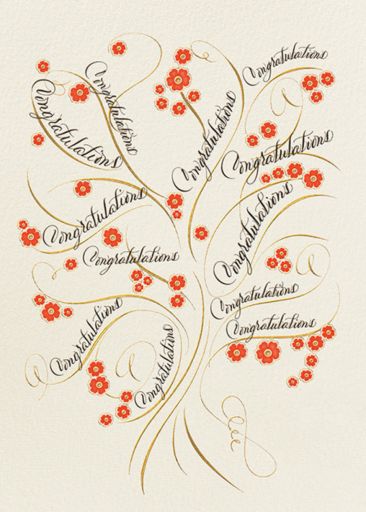 Congratulations
Congratulations
Congratulations
Congratulations
Congratulations
Congratulations
Congratulations
Congratulations
Congratulations
Congratulations
Congratulations
Congratulations